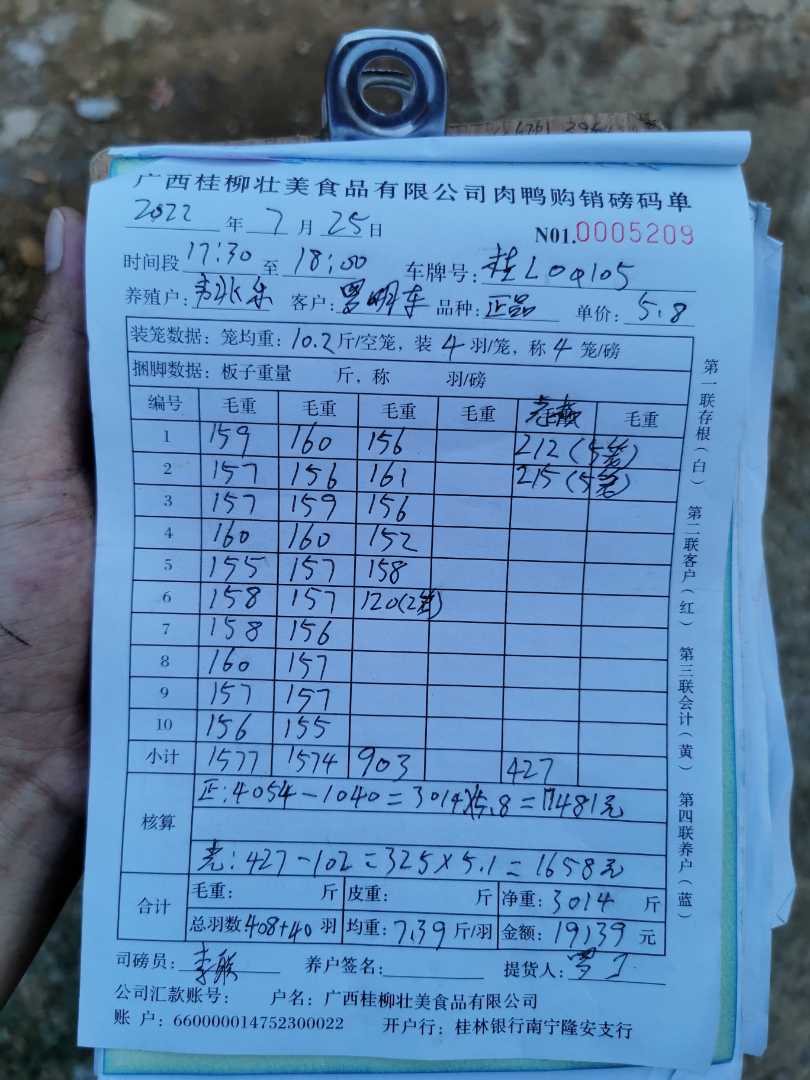 广西桂柳壮美食品有限公司肉鸭购销磅码单
2022 年 7 月 25 日
N01.0005209
时间段 17:30 至 18:00 车牌号: 桂L09105
养殖户: 客户: 罗明东 品种: 正品 单价: 5.8
装笼数据: 笼均重: 10.2 斤/空笼, 装 4 羽/笼, 称 4 笼/磅
捆脚数据: 板子重量 斤, 称 羽/磅
编号 毛重 毛重 毛重 毛重 毛重
1 159 160 156 212(5笼)
2 157 156 161 215(5笼)
3 157 159 156
4 160 160 152
5 155 157 158
6 158 157 120(2笼)
7 158 156
8 160 157
9 157 157
10 156 155
小计 1577 1574 903 427
核算
正:4054-1040=3014×5.8=17481元
壳:427-102=325×5.1=1658元
合计
毛重: 斤 皮重: 斤 净重: 3014 斤
总羽数 408+40 羽 均重: 7.39 斤/羽 金额: 19139 元
司磅员: 养户签名: 提货人:
公司汇款账号: 户名: 广西桂柳壮美食品有限公司
账 户: 660000014752300022 开户行: 桂林银行南宁隆安支行
第一联存根(白) 第二联客户(红) 第三联会计(黄) 第四联养户(蓝)